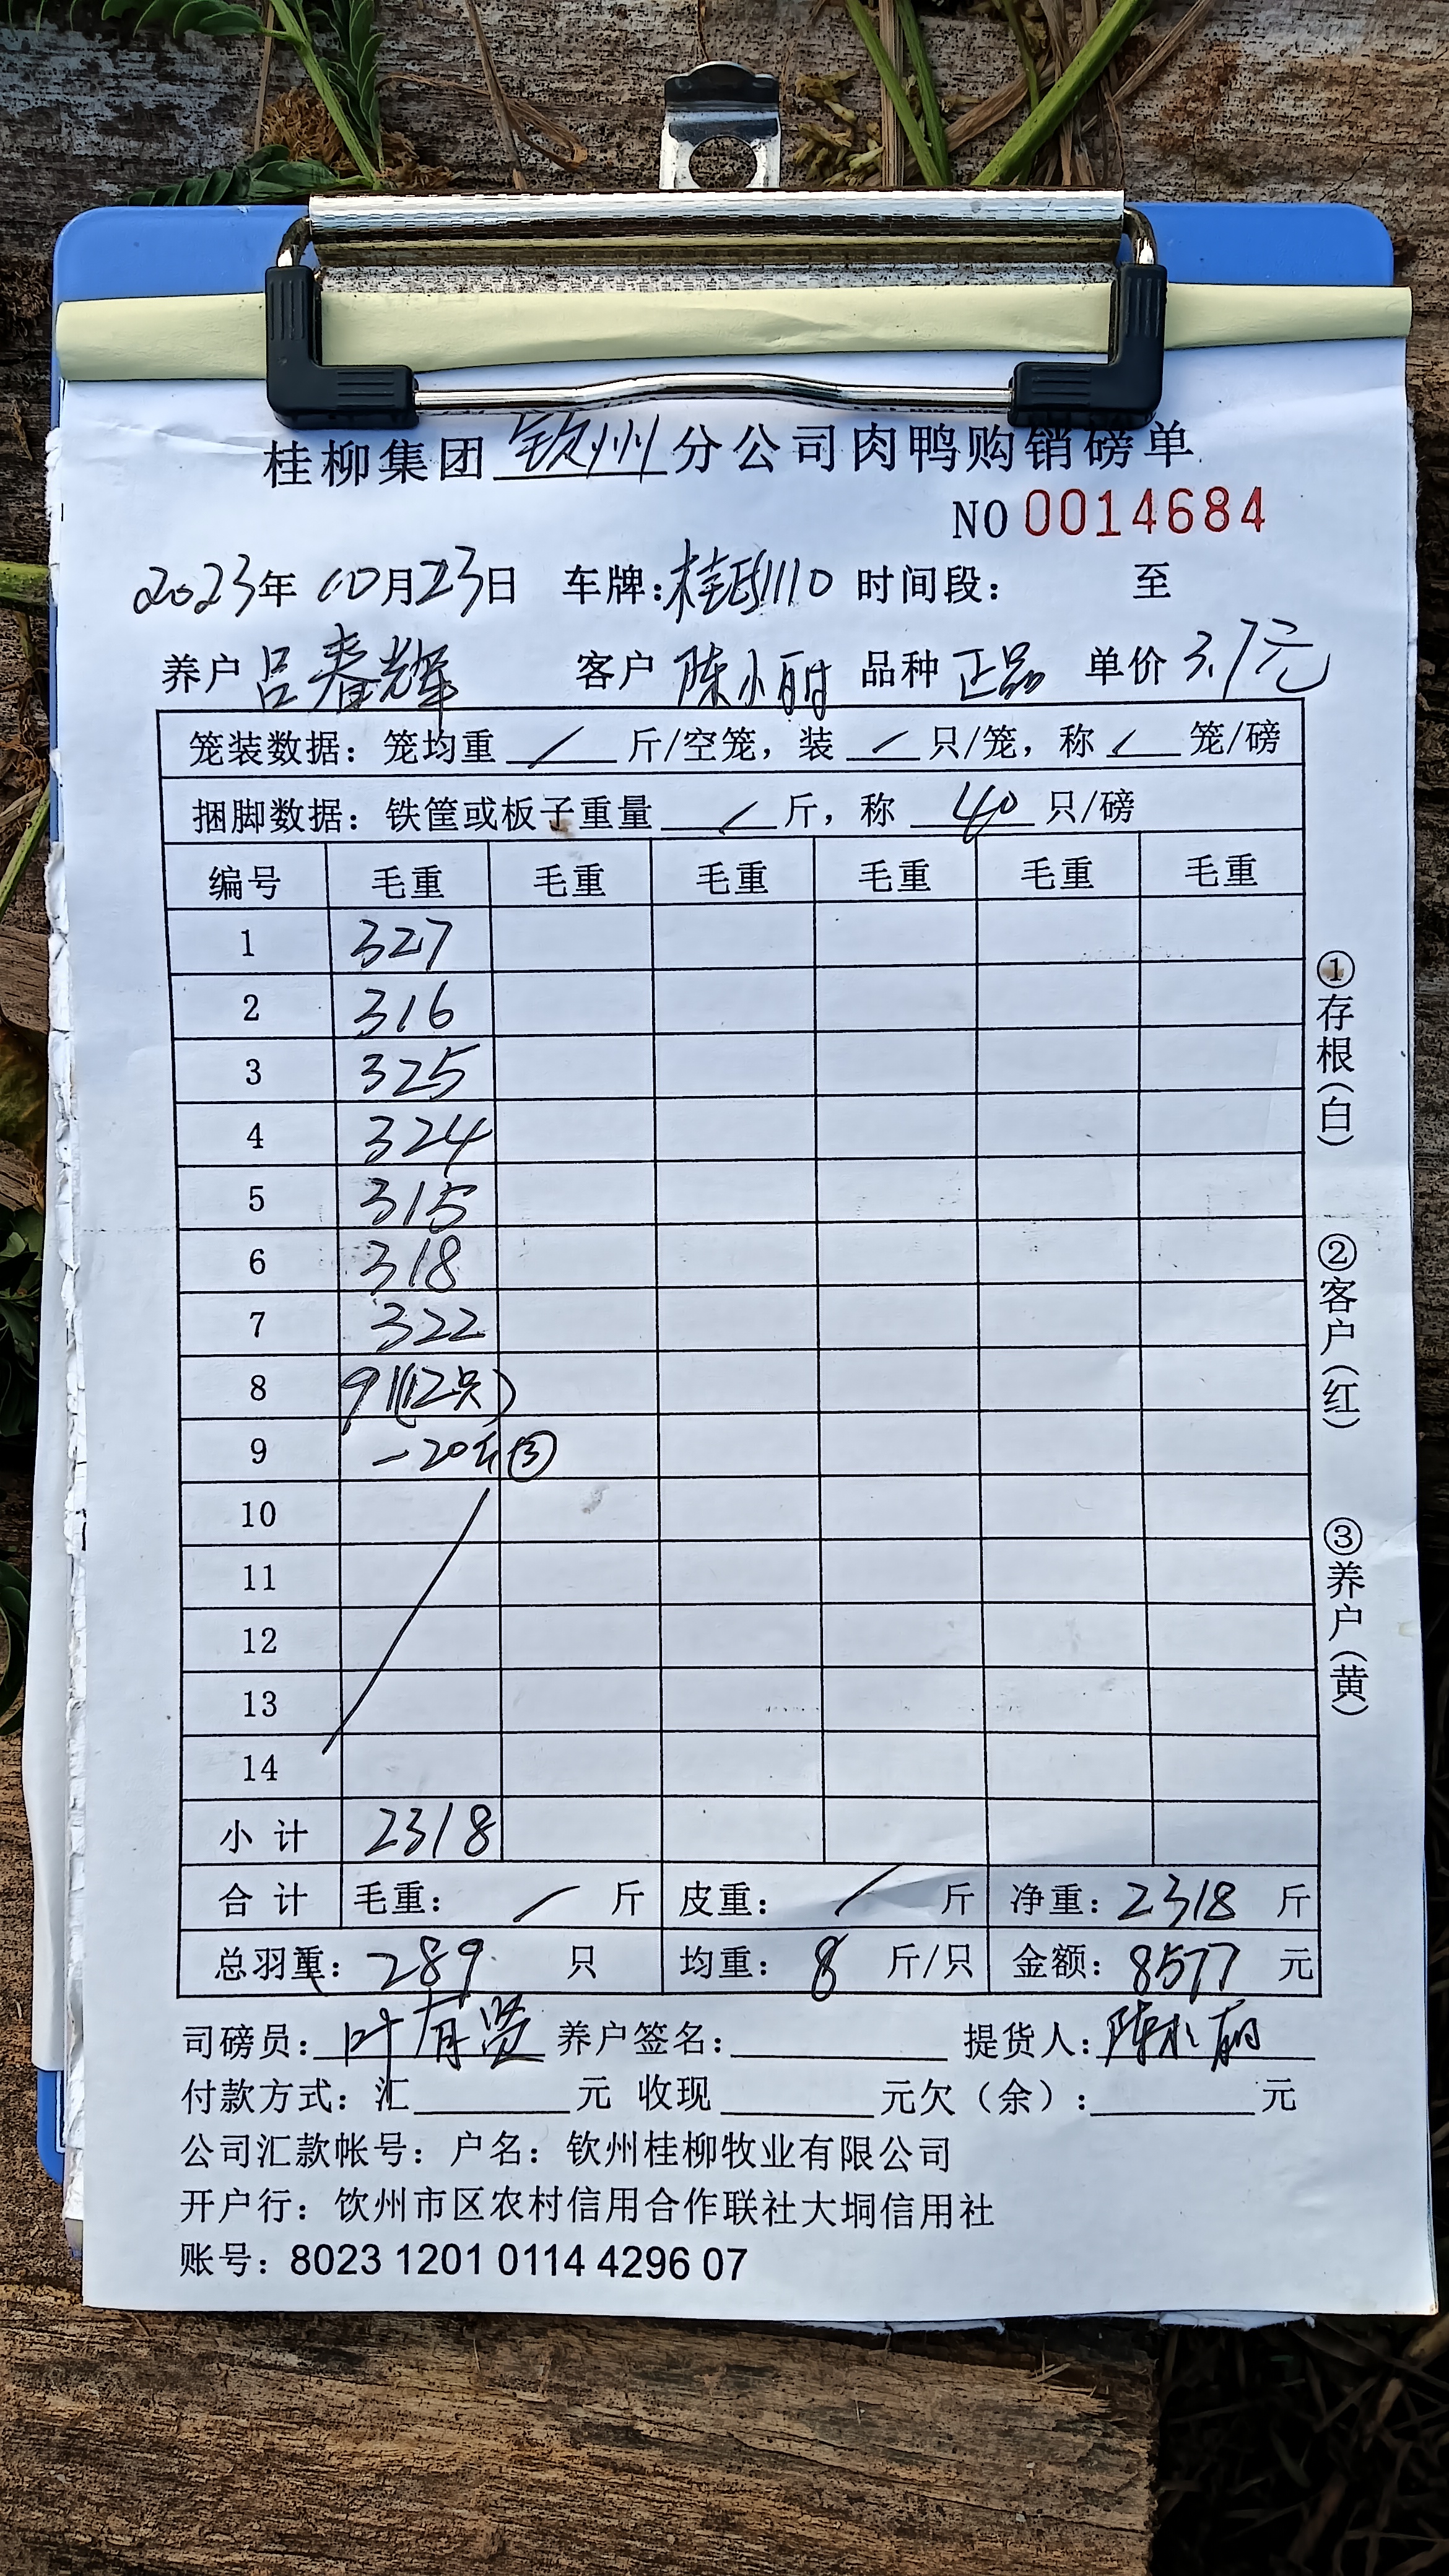 桂柳集团 钦州 分公司肉鸭购销磅单
NO 0014684
2023年 10月23日 车牌: 时间段： 至
养户 吕春辉 客户 陈小丽 品种 正品 单价 3.7元
笼装数据：笼均重 / 斤/空笼，装 / 只/笼，称 / 笼/磅
捆脚数据：铁筐或板子重量 / 斤，称 40 只/磅
编号 毛重 毛重 毛重 毛重 毛重 毛重
1 327
2 316
3 325
4 324
5 315
6 318
7 322
8 91(12只)
9 -20斤 ③
10
11
12
13
14
小计 2318
合计 毛重： / 斤 皮重： / 斤 净重：2318 斤
总羽重：289 只 均重：8 斤/只 金额：8577 元
司磅员：叶有贤 养户签名： 提货人：陈小丽
付款方式：汇 元 收现 元欠（余）： 元
公司汇款帐号：户名：钦州桂柳牧业有限公司
开户行：饮州市区农村信用合作联社大垌信用社
账号：8023 1201 0114 4296 07
①存根（白）
②客户（红）
③养户（黄）